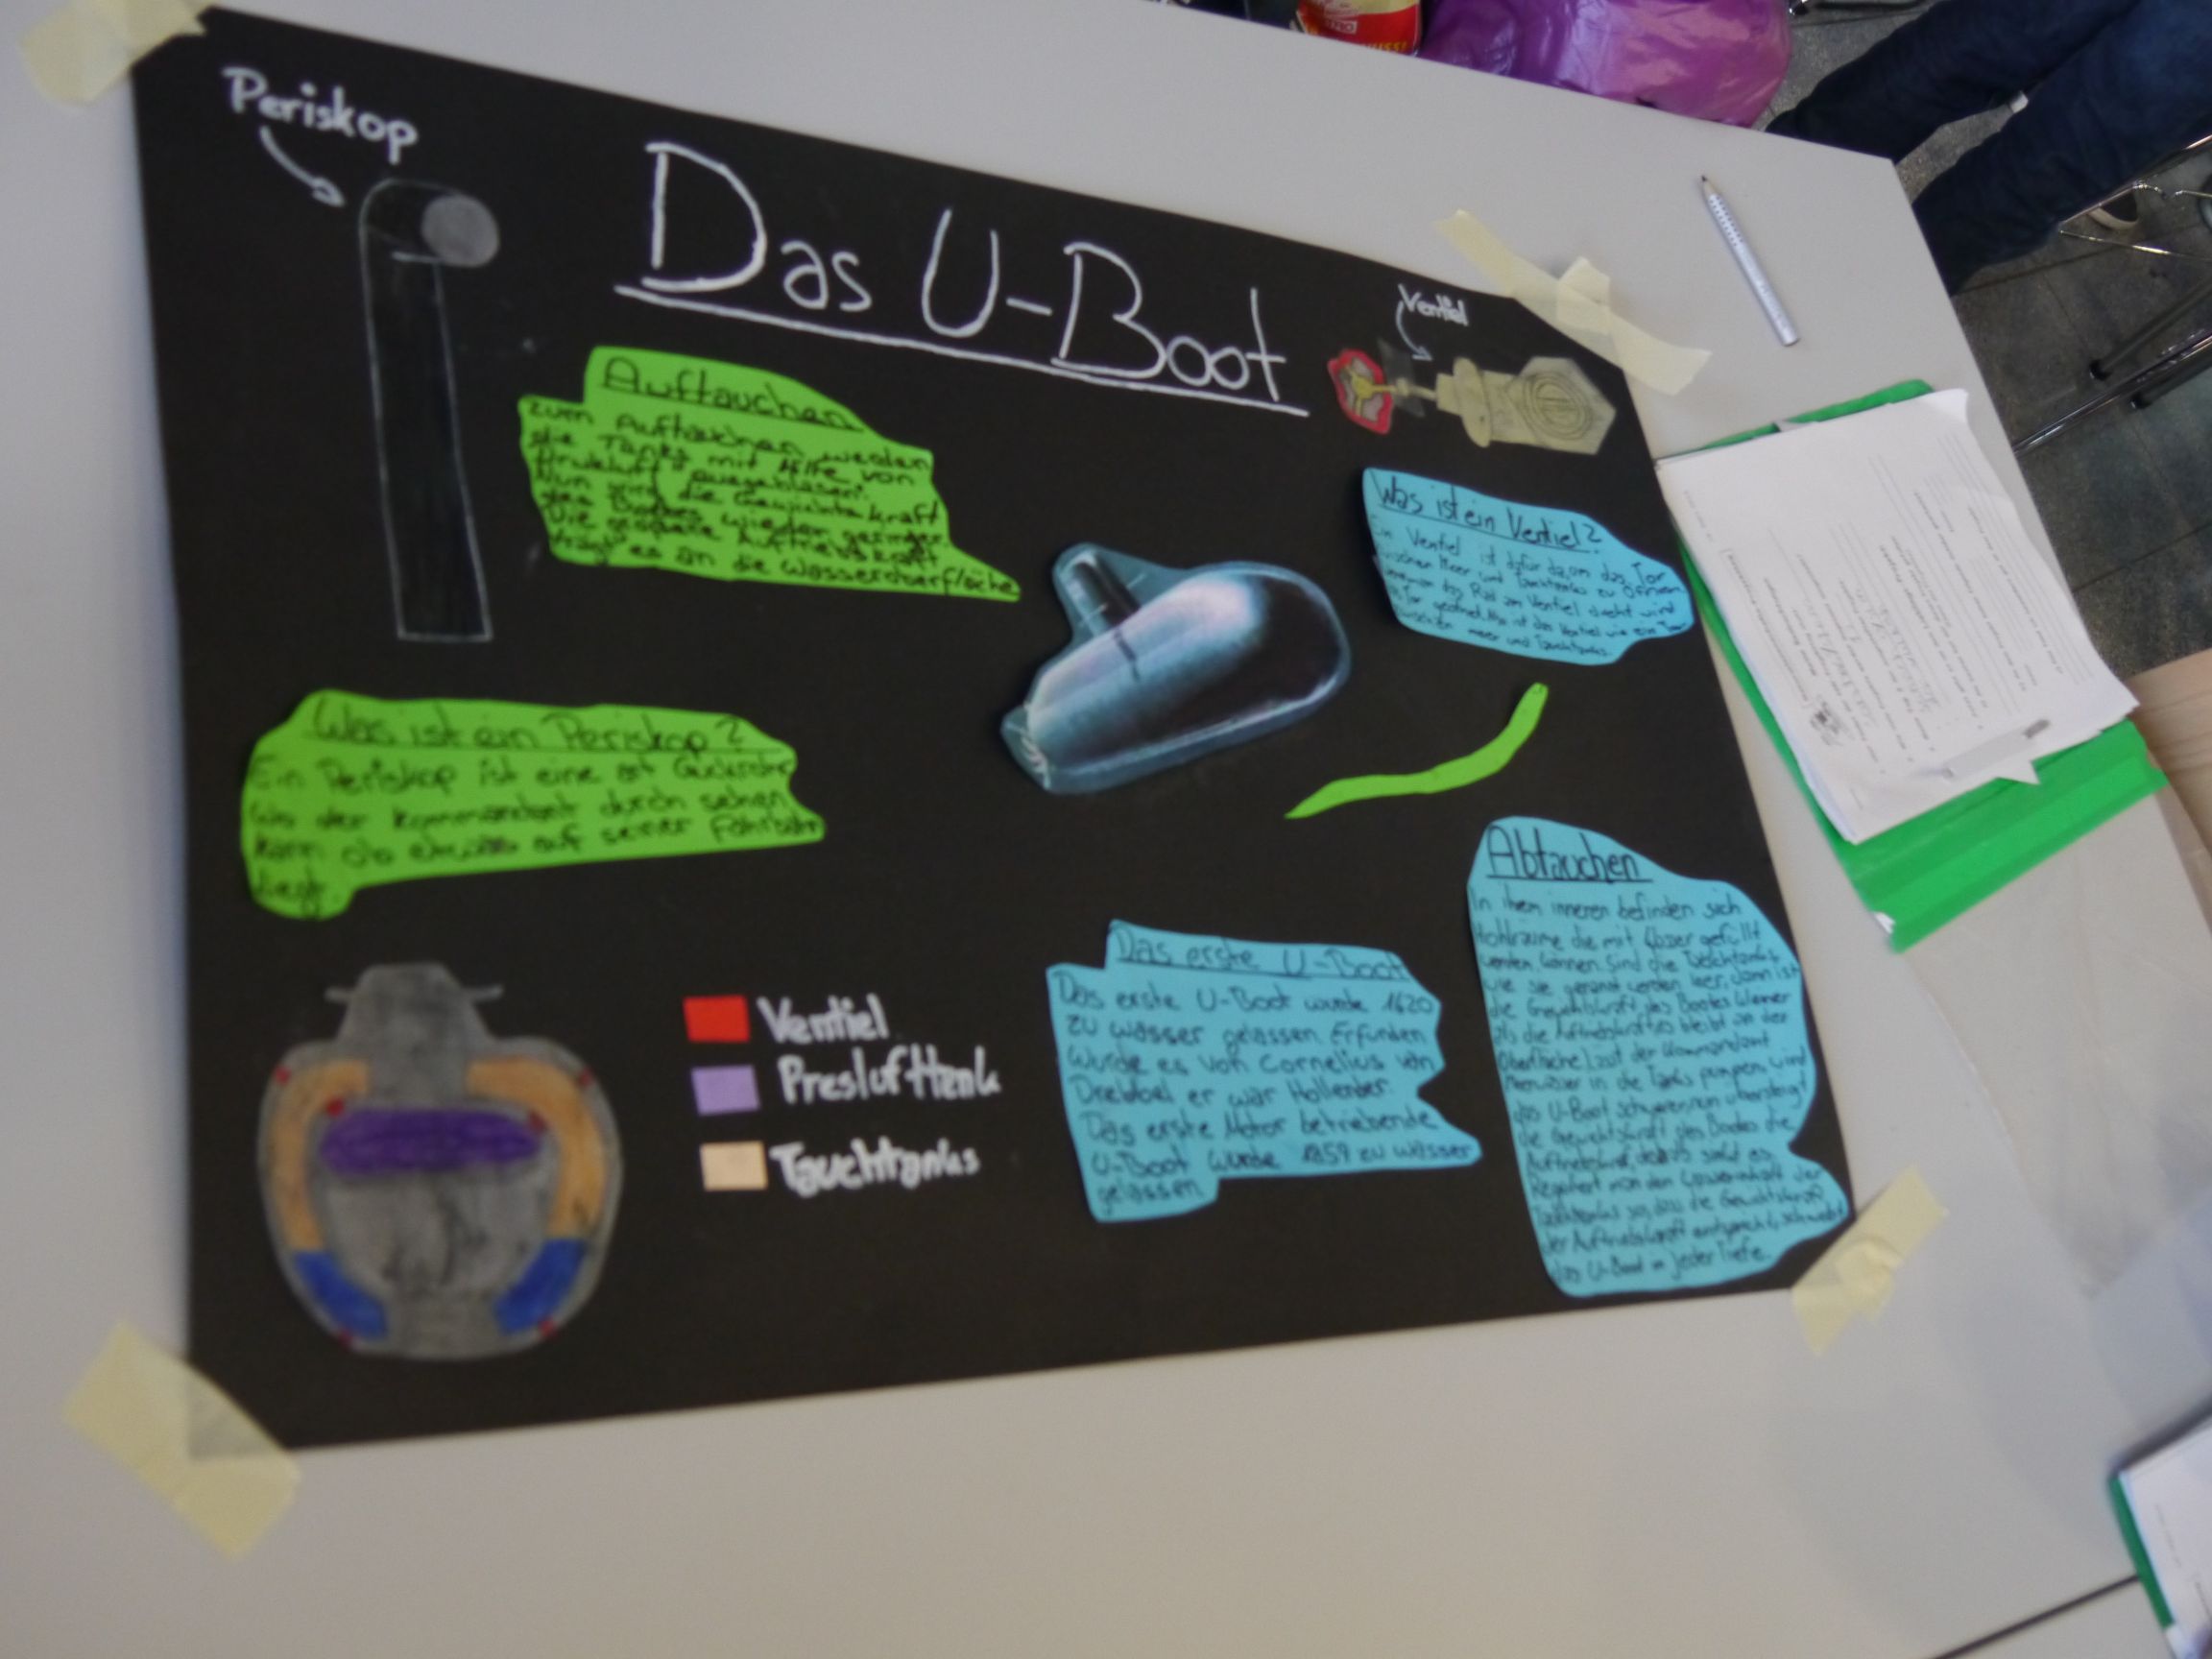 Periskop
Das U-Boot
Ventiel
Auftauchen
Zum Auftauchen werden
die Tanks mit Hilfe von
Druckluft ausgeblasen.
Nun wird die Gewichtskraft
des Bootes wieder geringer
Die größere Auftriebskraft
trägt es an die Wasseroberfläche
Was ist ein Ventiel?
Ein Ventiel ist dafür da um das Tor
zwischen Meer und Tauchtanks zu öffnen
das Rad am Ventiel dreht wird
das Ventiel wie ein Tor
zwischen meer und Tauchtanks.
Was ist ein Periskop?
Ein Periskop ist eine art
wo der Kommandant durch sehen
kann ob etwas auf seiner Fahrbahn
liegt.
Ventiel
Preslufttank
Tauchtanks
Das erste U-Boot
Das erste U-Boot wurde 1620
zu wasser gelassen. Erfunden
wurde es von Cornelius van
Drebbel er war Hollender.
Das erste Motor betriebende
U-Boot wurde 1859 zu wasser
gelassen.
Abtauchen
In ihem inneren befinden sich
Hohlräume die mit Wasser gefüllt
werden können. Sind die Tauchtanks
wie sie genannt werden leer, dann ist
die Gewichtskraft des Bootes kleiner
als die Auftriebskraft es bleibt an der
Oberfläche. Lässt der Kommandant
Meerwasser in die Tanks pumpen wird
das U-Boot schwerer nun übersteigt
die Gewichtskraft des Bootes die
Auftriebskraft, sinkt es.
Reguliert man den Wasserinhalt der
Tauchtanks so, dass die Gewichtskraft
der Auftriebskraft entspricht, schwebt
das U-Boot in jeder Tiefe.